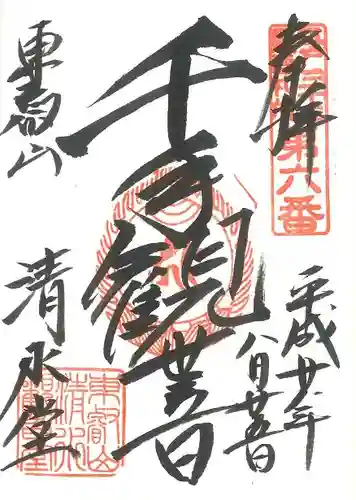 奉拝
平成廿八年
八月廿五日
千手観世音
東叡山
清水堂
第六番
東叡山
清水
観音堂